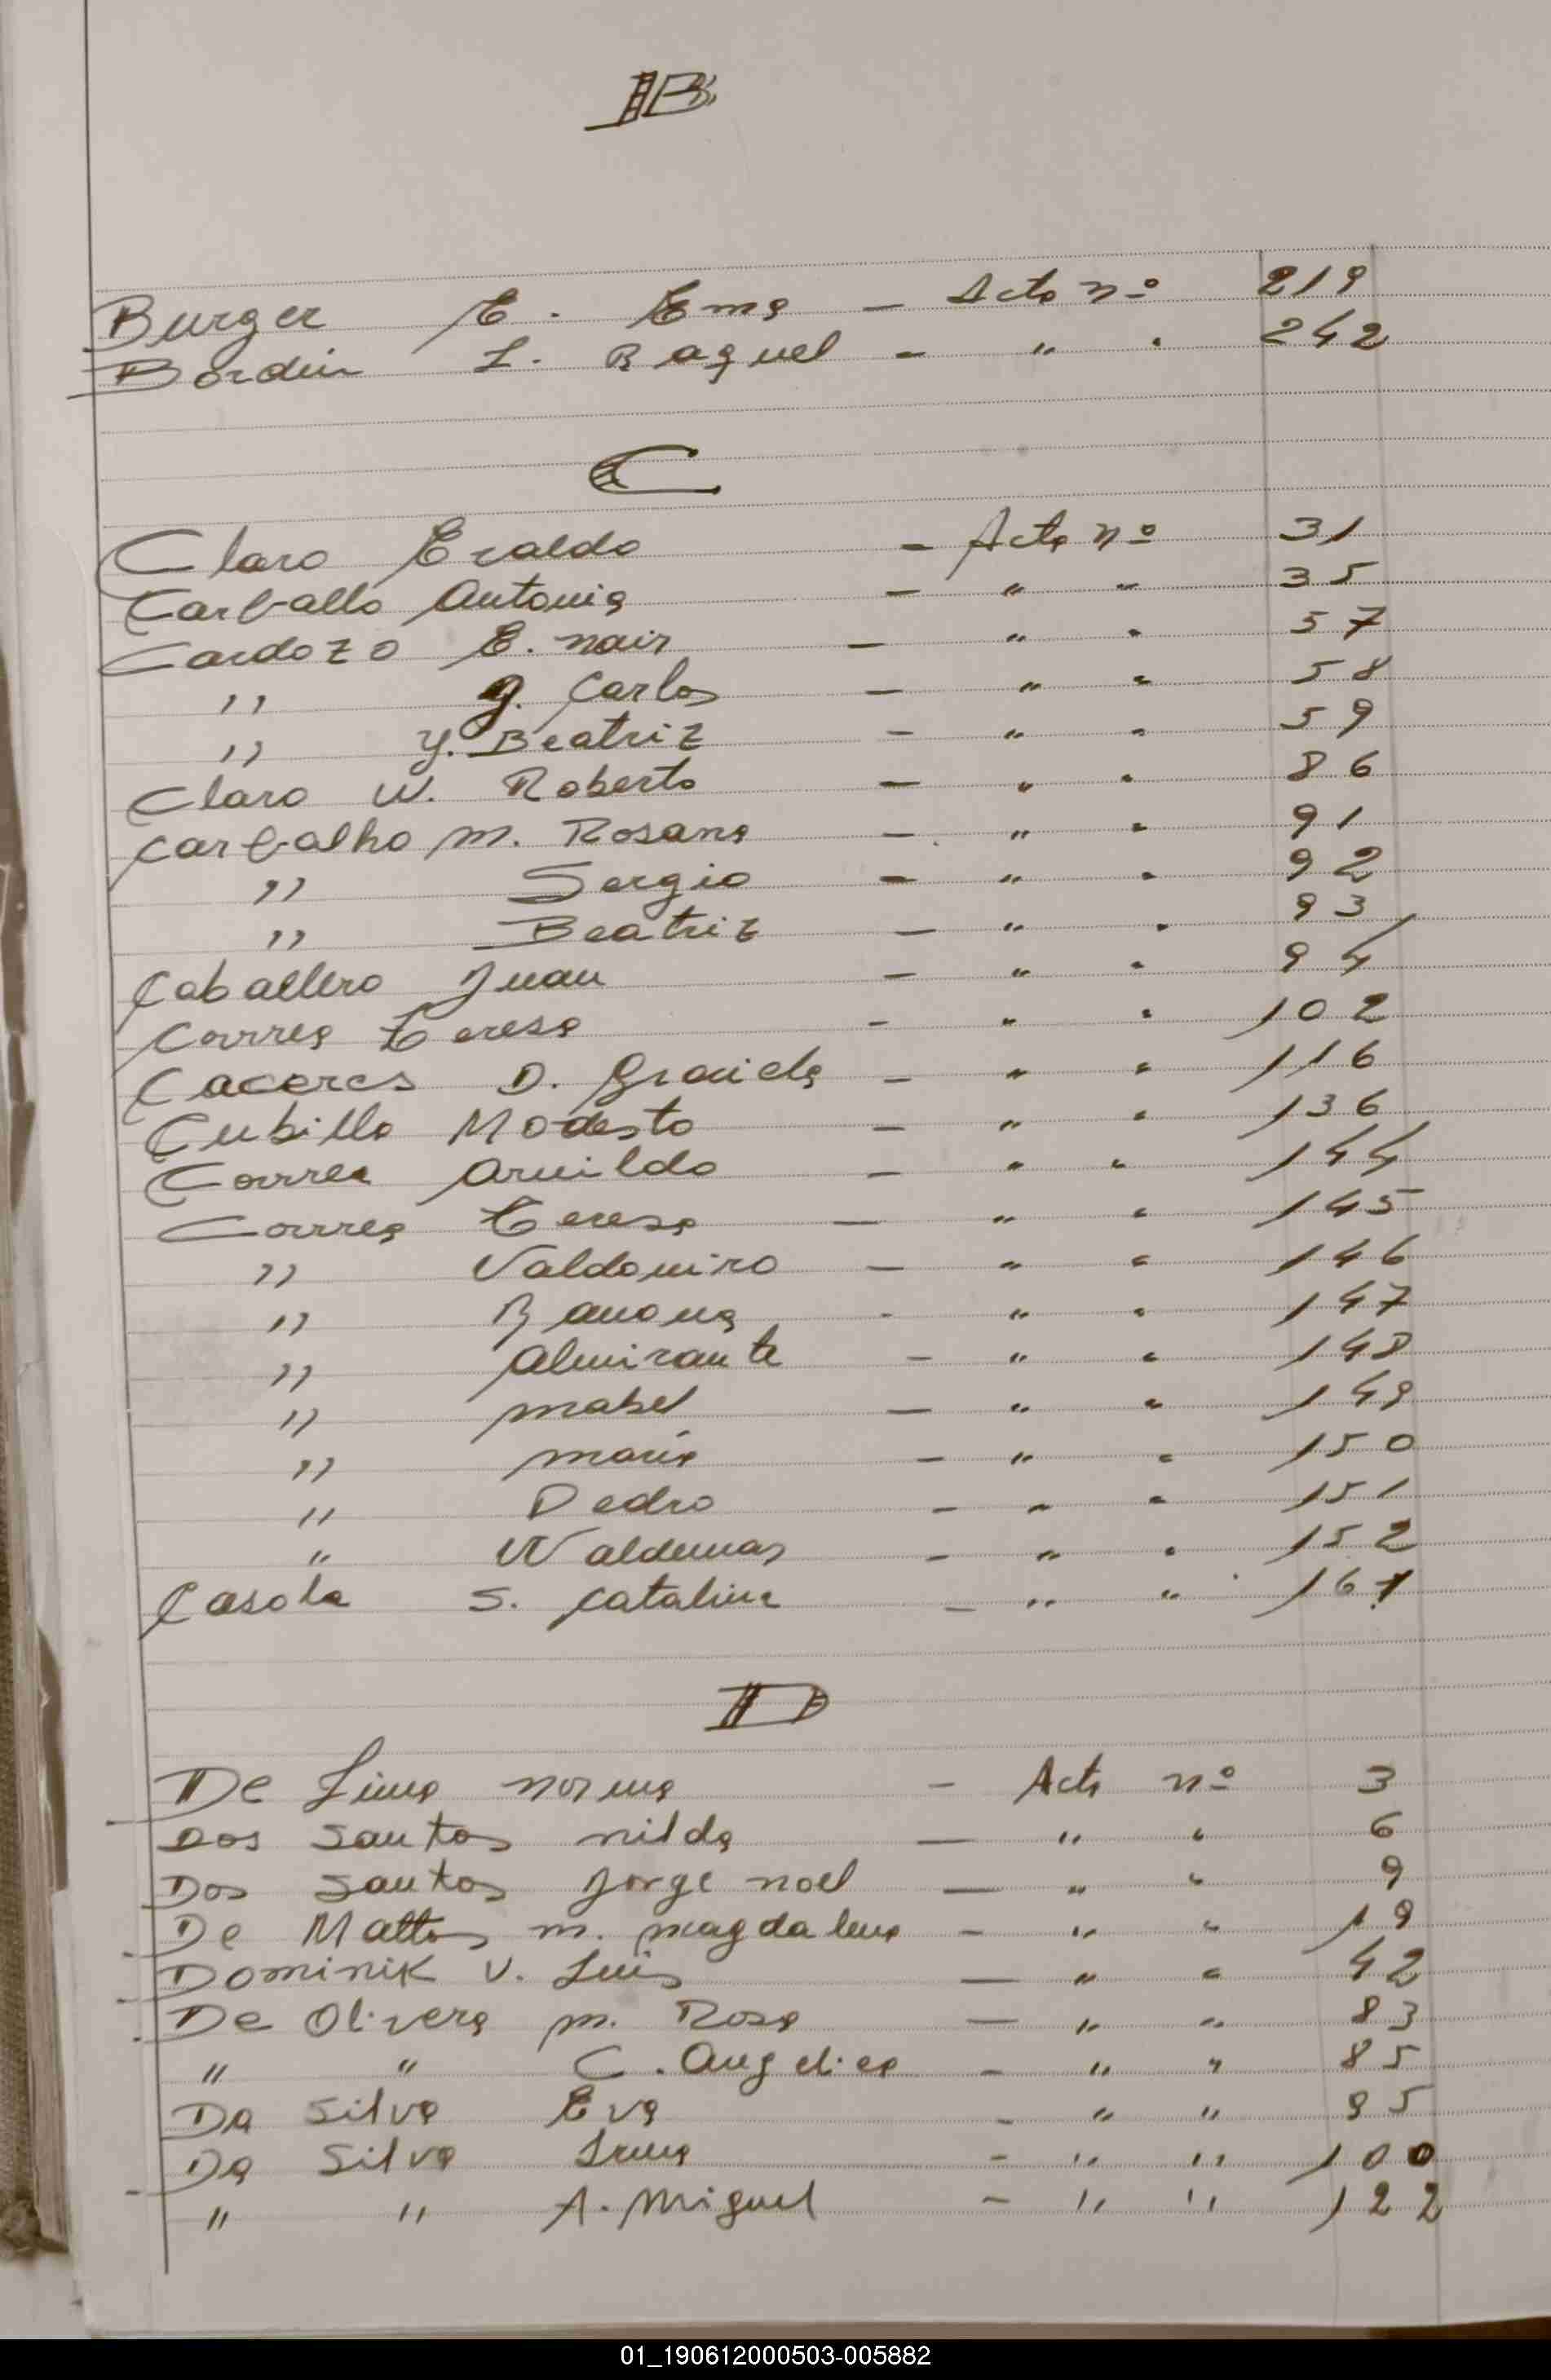 B
Burger E. Ema - Acta nº 219
Bordin L. Raquel - " " 242
C
Claro Eraldo - Acta nº 31
Carballo Antonia - " " 35
Cardozo E. nair - " " 57
" J. Carlos - " " 58
" Y. Beatriz - " " 59
Claro W. Roberto - " " 86
Carbalho M. Rosana - " " 91
" Sergio - " " 92
" Beatriz - " " 93
Caballero Juan - " " 94
Correa Teresa - " " 102
Caceres D. Graciela - " " 116
Cubilla Modesto - " " 136
Correa Arnildo - " " 144
Correa Teresa - " " 145
" Valdomiro - " " 146
" Ramona - " " 147
" Almirante - " " 148
" Mabel - " " 149
" María - " " 150
" Pedro - " " 151
" Waldemar - " " 152
Casola S. Catalina - " " 161
D
De Lima Norma - Acta nº 3
Dos Santos nilda - " " 6
Dos Santos Jorge noel - " " 9
De Mattos M. Magdalena - " " 19
Dominik V. Luis - " " 42
De Olivera M. Rosa - " " 83
" " C. Angelica - " " 85
Da Silva Eva - " " 95
Da Silva Irma - " " 100
" " A. Miguel - " " 122
01_190612000503-005882